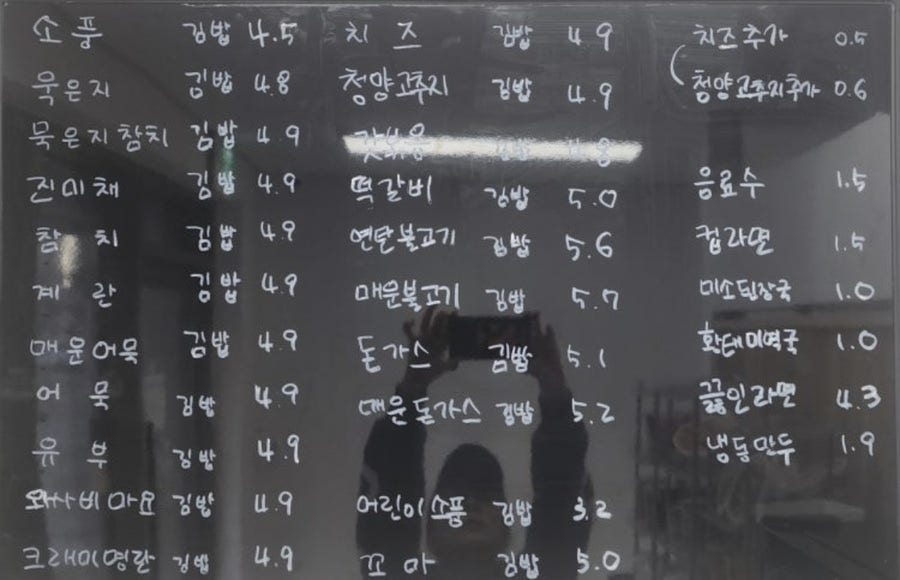 소풍 김밥 4.5
묵은지 김밥 4.8
묵은지참치 김밥 4.9
진미채 김밥 4.9
참치 김밥 4.9
계란 김밥 4.9
매운어묵 김밥 4.9
어묵 김밥 4.9
유부 김밥 4.9
와사비마요 김밥 4.9
크래미명란 김밥 4.9
치즈 김밥 4.9
청양고추지 김밥 4.9
김밥 4.8
떡갈비 김밥 5.0
연탄불고기 김밥 5.6
매운불고기 김밥 5.7
돈가스 김밥 5.1
매운돈가스 김밥 5.2
어린이소풍 김밥 3.2
꼬마 김밥 5.0
치즈추가 0.5
청양고추지추가 0.6
음료수 1.5
컵라면 1.5
미소된장국 1.0
황태미역국 1.0
끓인라면 4.3
냉동만두 1.9